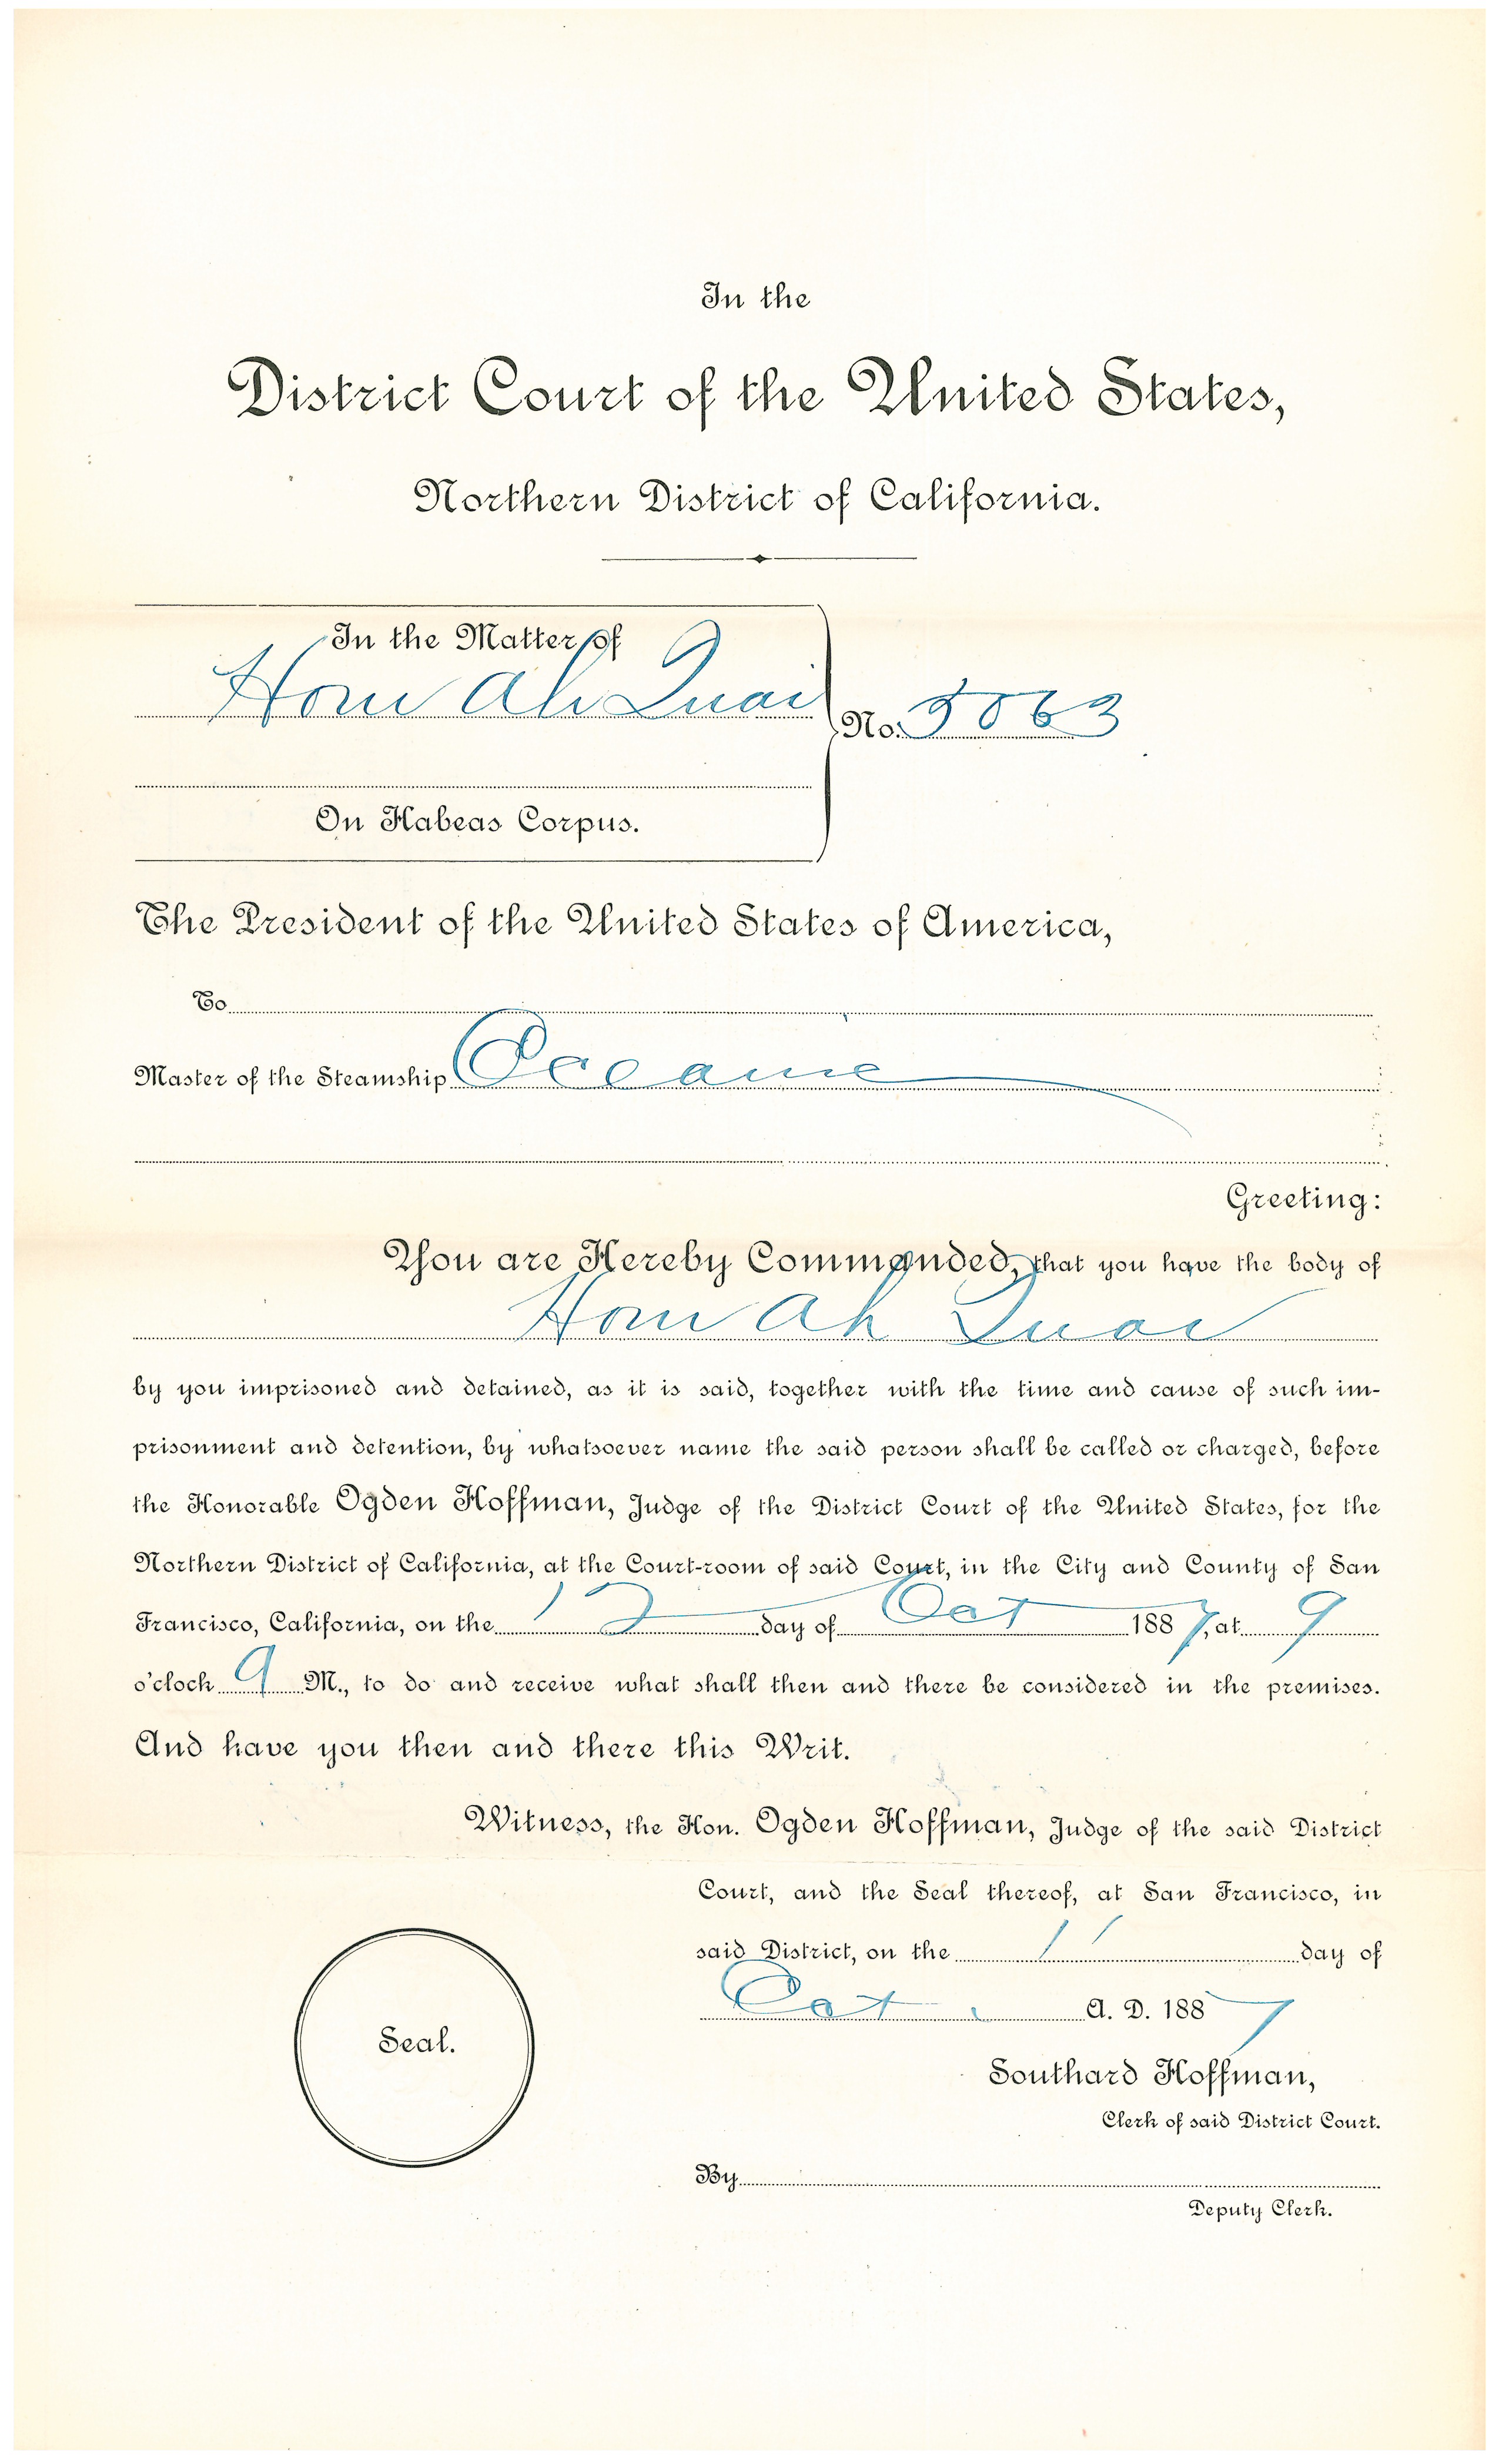 In the
District Court of the United States,
Northern District of California.
In the Matter of
Hom Ah Quai
No. 5063
On Habeas Corpus.
The President of the United States of America,
To
Master of the Steamship Oceanic
Greeting:
You are Hereby Commanded, that you have the body of
Hom Ah Quai
by you imprisoned and detained, as it is said, together with the time and cause of such im-
prisonment and detention, by whatsoever name the said person shall be called or charged, before
the Honorable Ogden Hoffman, Judge of the District Court of the United States, for the
Northern District of California, at the Court-room of said Court, in the City and County of San
Francisco, California, on the 12 day of Oct 1887, at 9
o'clock a M., to do and receive what shall then and there be considered in the premises.
And have you then and there this Writ.
Witness, the Hon. Ogden Hoffman, Judge of the said District
Court, and the Seal thereof, at San Francisco, in
said District, on the 11 day of
Oct. A. D. 1887
Seal.
Southard Hoffman,
Clerk of said District Court.
By
Deputy Clerk.